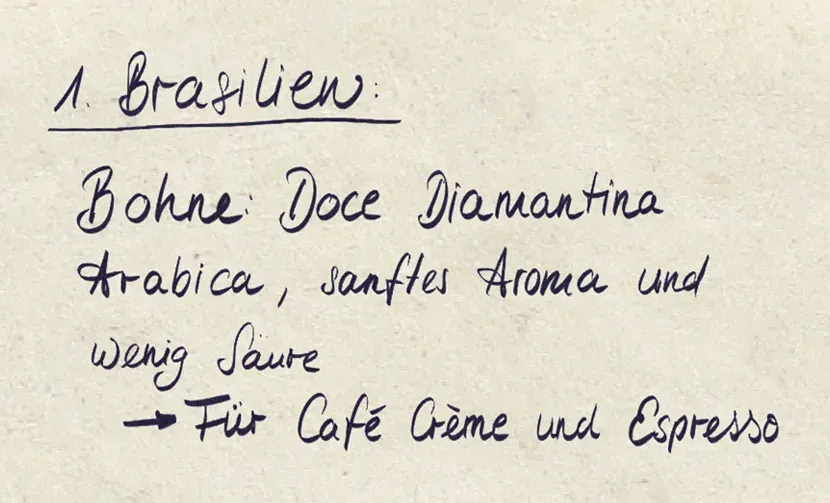 1. Brasilien:
Bohne: Doce Diamantina
Arabica, sanftes Aroma und
wenig Säure
→ Für Café Crème und Espresso